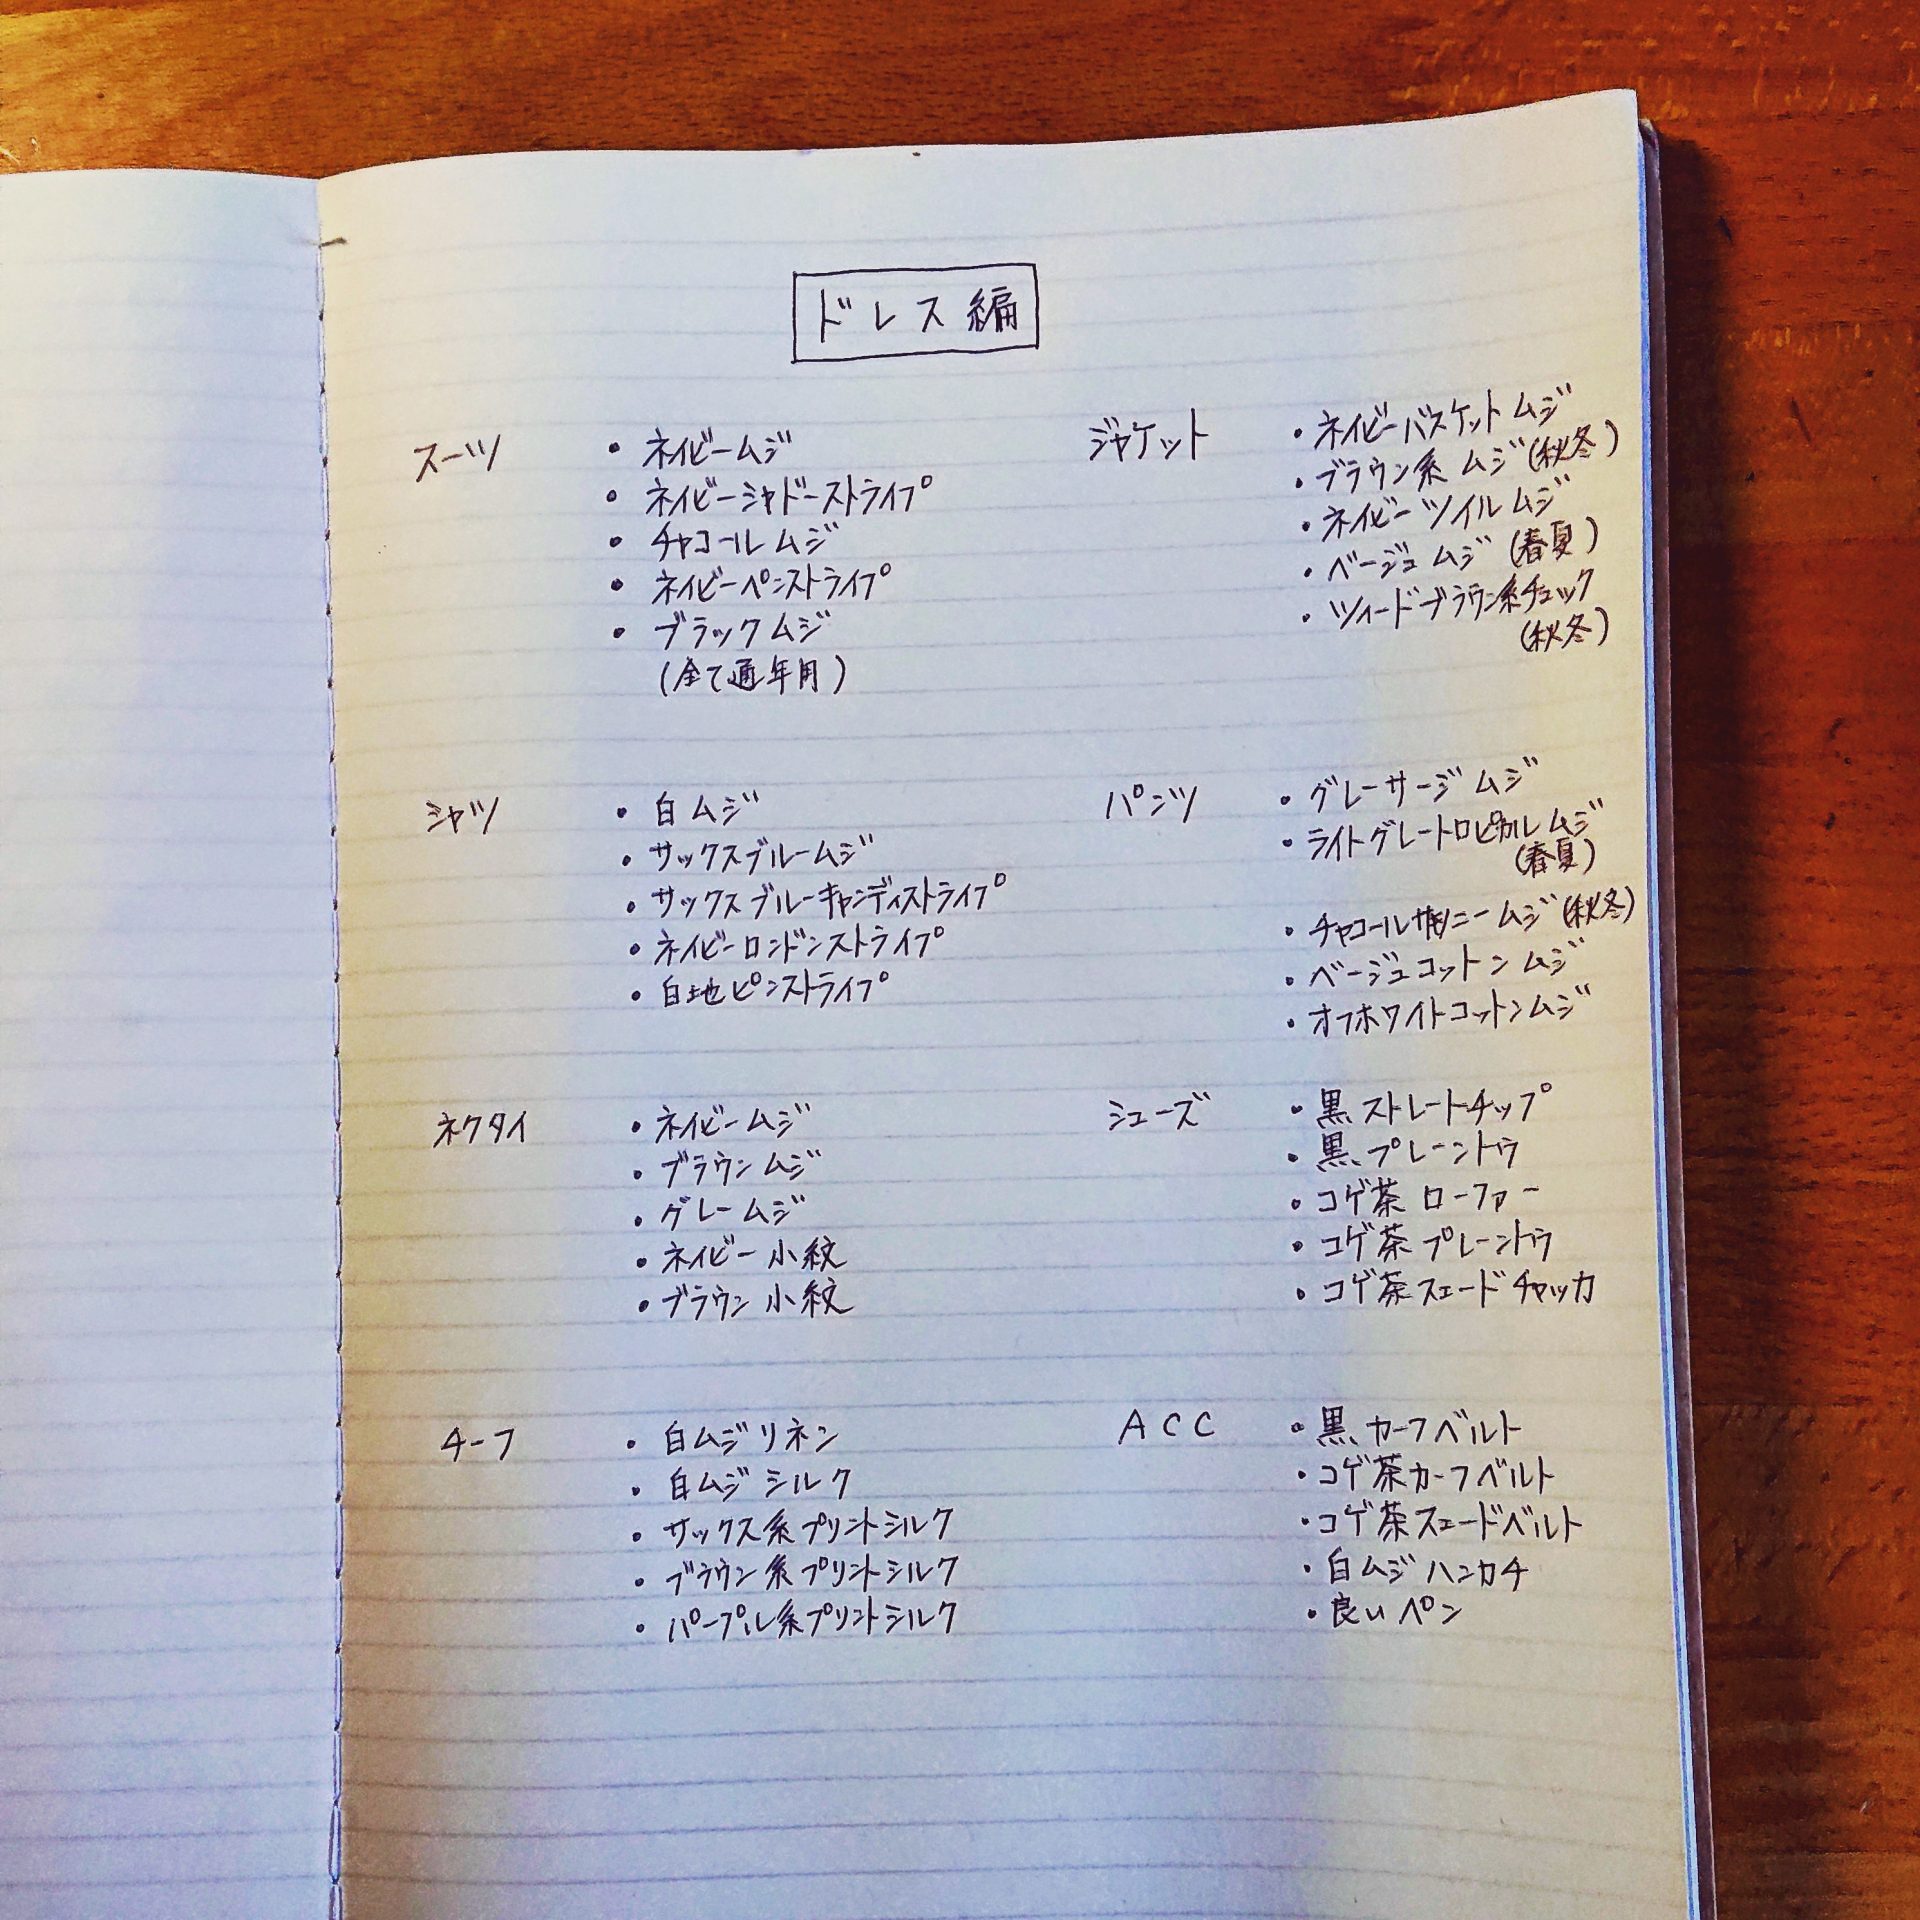 ドレス編
スーツ
・ネイビームジ
・ネイビーシャドーストライプ
・チャコールムジ
・ネイビーペンストライプ
・ブラックムジ
(全て通年用)
ジャケット
・ネイビーバスケットムジ
・ブラウン系ムジ(秋冬)
・ネイビーツイルムジ
・ベージュムジ(春夏)
・ツィードブラウン系チェック
(秋冬)
シャツ
・白ムジ
・サックスブルームジ
・サックスブルーキャンディストライプ
・ネイビーロンドンストライプ
・白地ピンストライプ
パンツ
・グレーサージムジ
・ライトグレートロピカルムジ
(春夏)
・チャコールサキソニームジ(秋冬)
・ベージュコットンムジ
・オフホワイトコットンムジ
ネクタイ
・ネイビームジ
・ブラウンムジ
・グレームジ
・ネイビー小紋
・ブラウン小紋
シューズ
・黒ストレートチップ
・黒プレーントゥ
・コゲ茶ローファー
・コゲ茶プレーントゥ
・コゲ茶スェードチャッカ
チーフ
・白ムジリネン
・白ムジシルク
・サックス系プリントシルク
・ブラウン系プリントシルク
・パープル系プリントシルク
ACC
・黒カーフベルト
・コゲ茶カーフベルト
・コゲ茶スェードベルト
・白ムジハンカチ
・良いペン